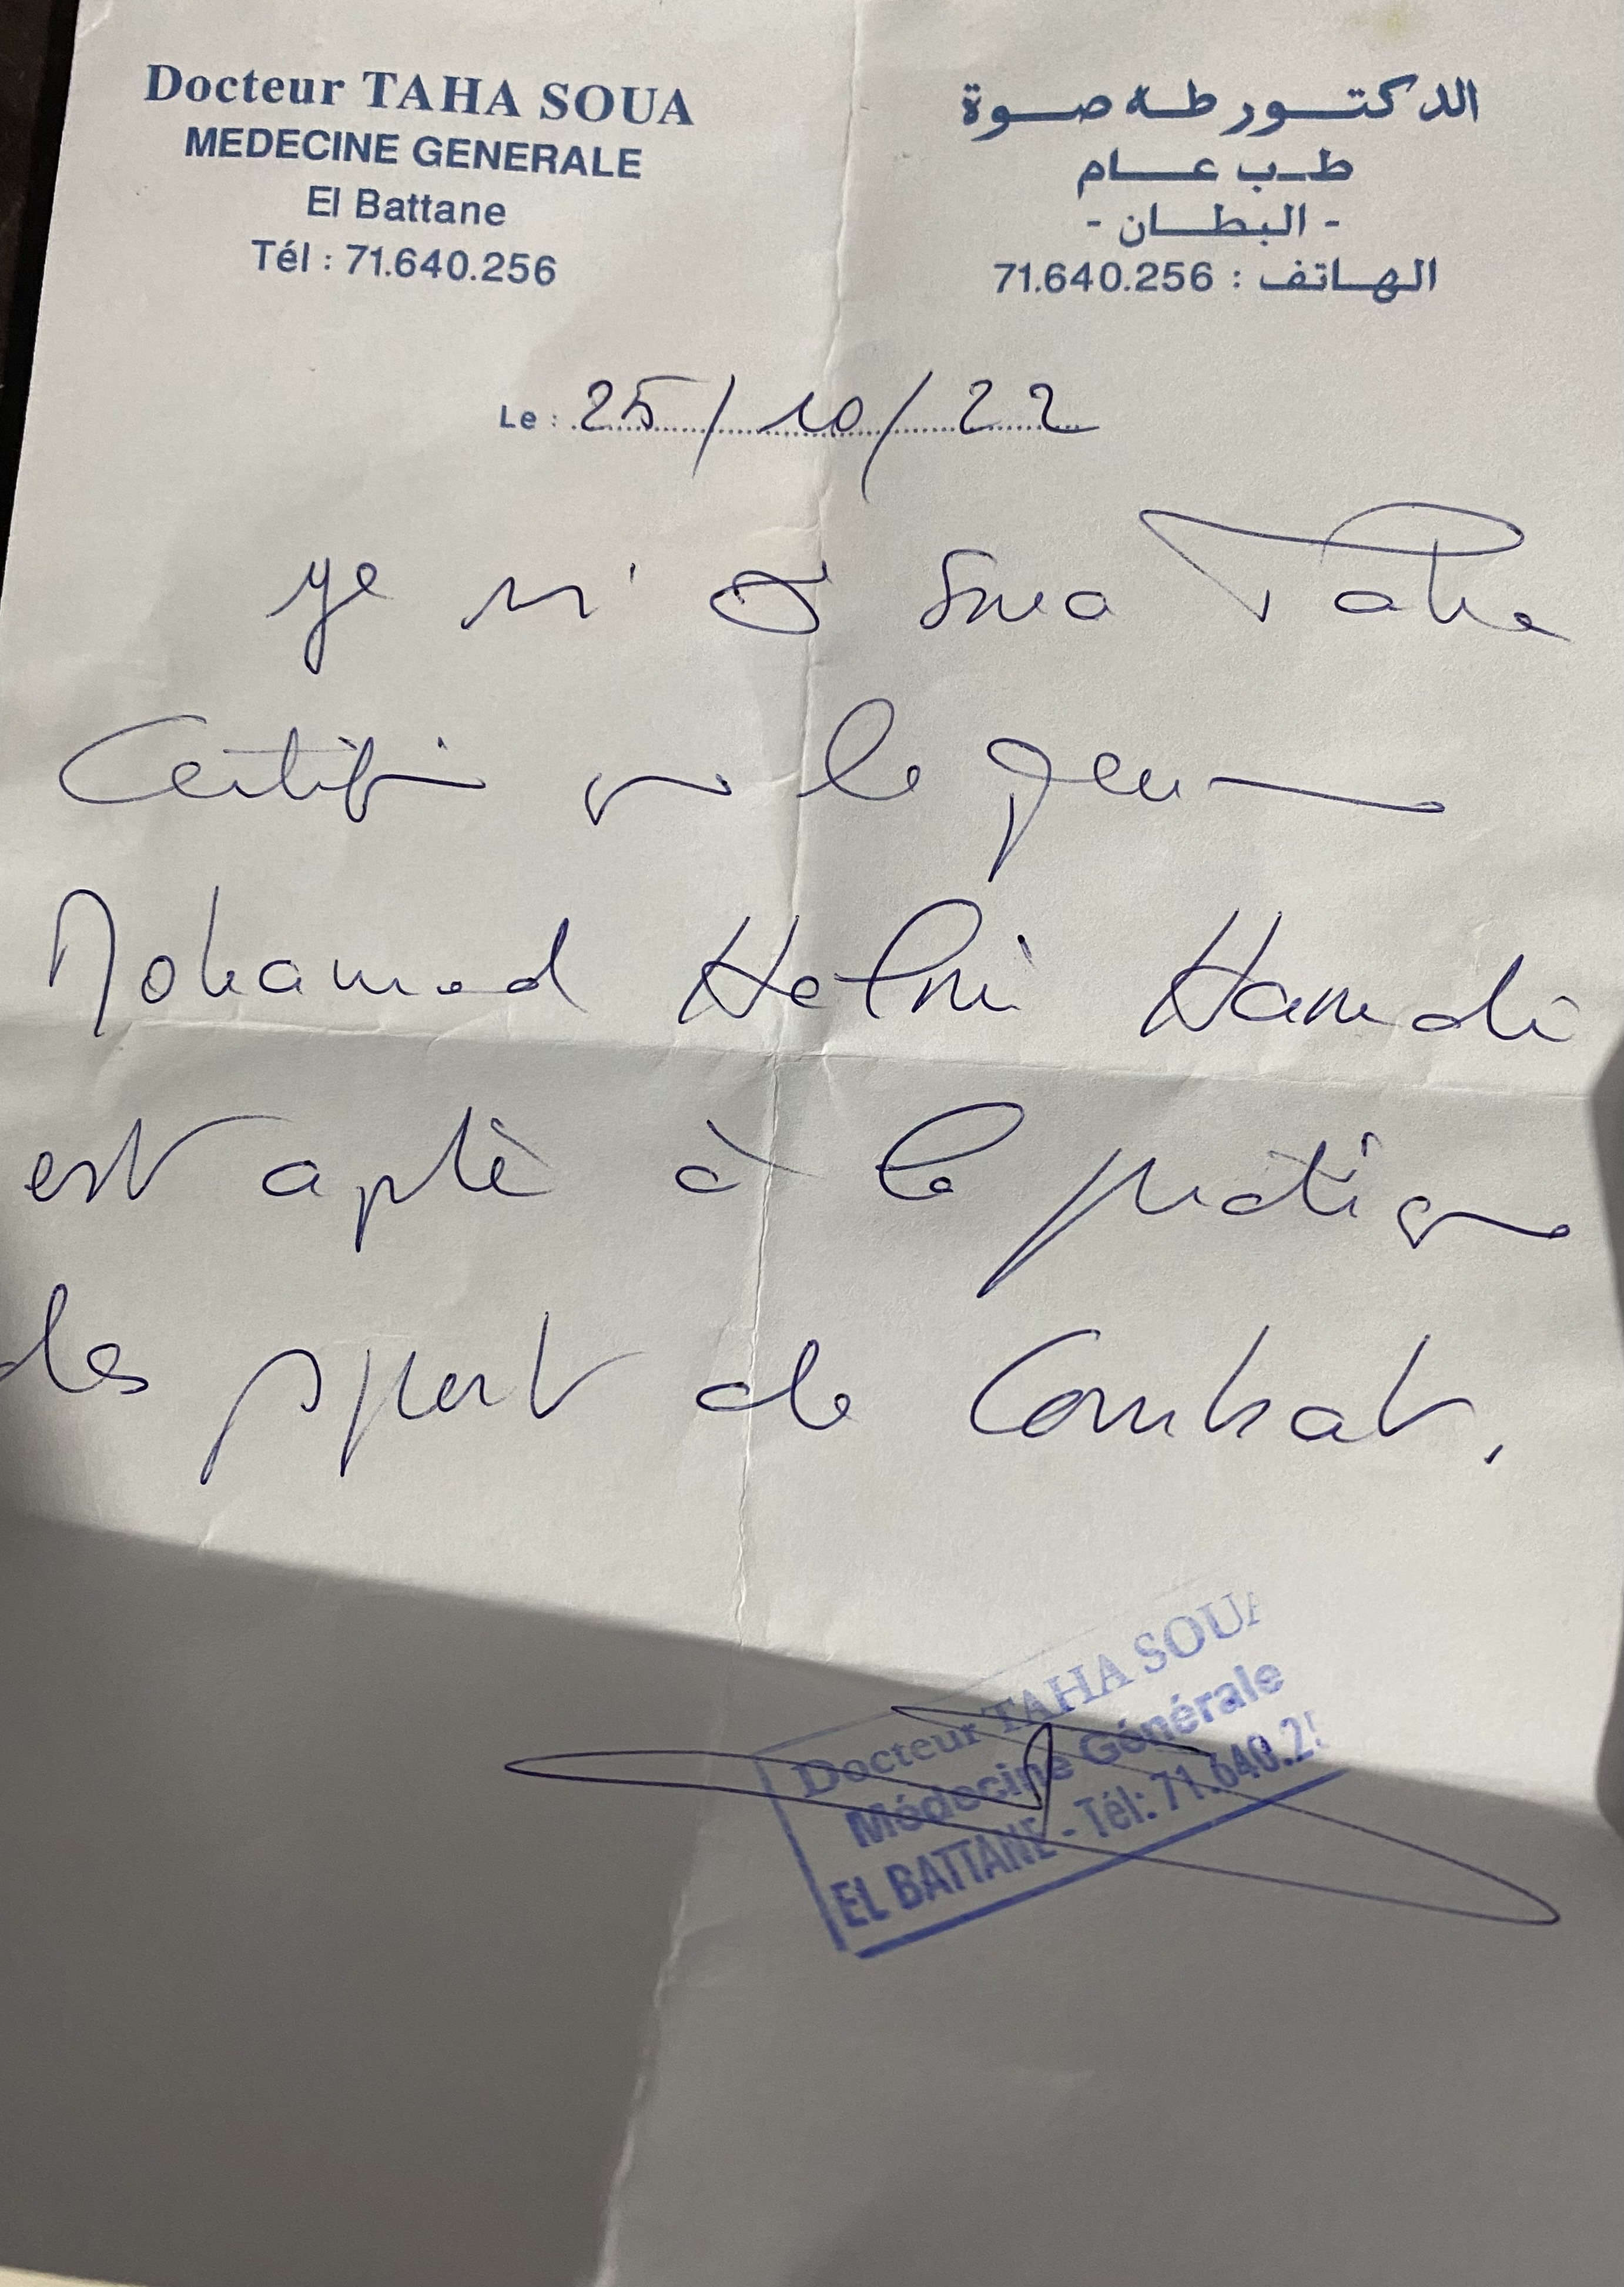 Docteur TAHA SOUA
MEDECINE GENERALE
El Battane
Tél : 71.640.256
الدكتور طه صوة
طب عام
- البطان -
الهاتف : 71.640.256
Le : 25/10/22
Soua Taha
Certifie que le jeune
Mohamed Helmi Hamdi
est apte à la pratique
des sport de Combat.
Docteur TAHA SOUA
Médecine Générale
EL BATTANE - Tél: 71.640.25